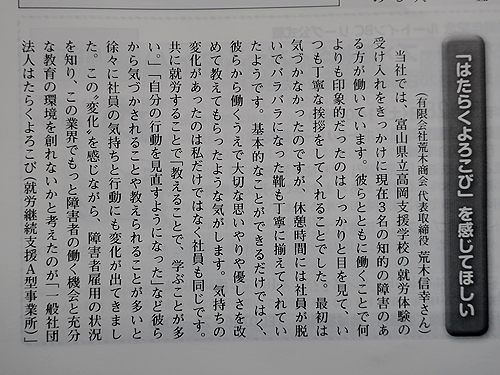 「はたらくよろこび」を感じてほしい
(有限会社荒木商会 代表取締役 荒木信幸さん)
当社では、富山県立高岡支援学校の就労体験の
受け入れをきっかけに現在３名の知的の障害のあ
る方が働いています。彼らとともに働くことで何
よりも印象的だったのはしっかりと目を見て、い
つも丁寧な挨拶をしてくれることでした。最初は
気づかなかったのですが、休憩時間には社員が脱
いでバラバラになった靴も丁寧に揃えてくれてい
たようです。基本的なことができるだけではなく、
彼らから働くうえで大切な思いやりや優しさを改
めて教えてもらったような気がします。気持ちの
変化があったのは私だけではなく社員も同じです。
共に就労することで「教えることで、学ぶことが多
い。」「自分の行動を見直すようになった」など彼ら
から気づかされることや教えられることが多いと
徐々に社員の気持ちと行動にも変化が出てきまし
た。この〝変化〟を感じながら、障害者雇用の状況
を知り、この業界でもっと障害者の働く機会と充分
な教育の環境を創れないかと考えたのが「一般社団
法人はたらくよろこび（就労継続支援A型事業所）」